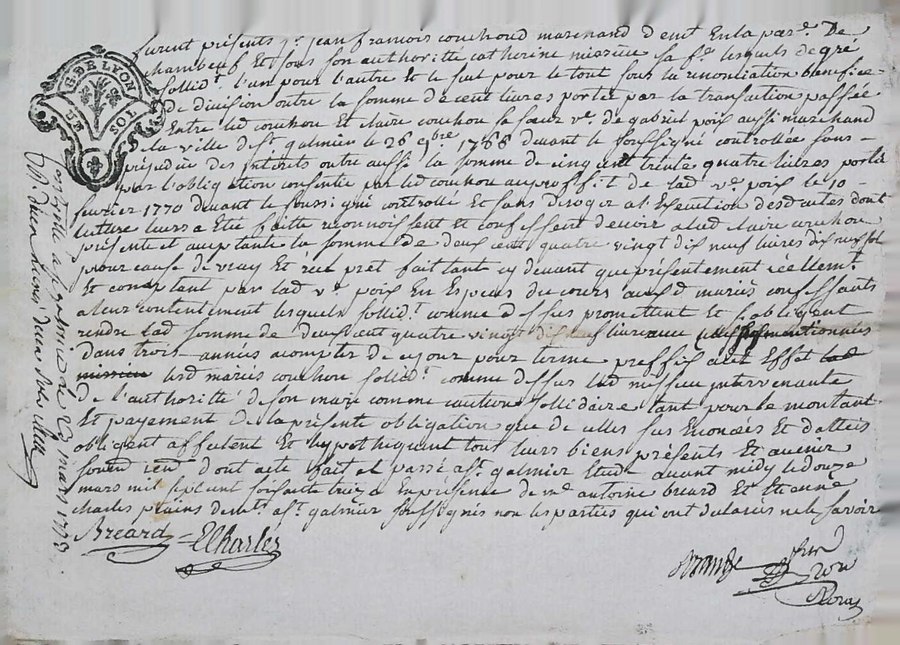 furent présents sr. jean francois couchoud marchand demt. En la par. De
chambeuf Et sous son authorité catherine mizeüe sa fe. lesquels de gré
sollidt. l'un pour l'autre Et le sul pour le tout sous la renontiation benefice
De division outre la somme de cent livres portée par la transaction passée
Entre led couchou Et claire couchou sa sœur ve. de gabriel poix aussi marchand
de la ville de st. galmier le 26 9bre 1768 devant le soussigné controllée sans
préjudice des interets outre aussi la somme de cinq cent trente quatre livres portée
par l'obligation consentie par led couchou au proffit de lad ve. poix le 10
fevrier 1770 devant le soussigné controllé Et sans deroger a l'Execution desd actes dont
lecture leurs a Eté faitte reconnoissent Et confessent devoir a lad claire couchou
présente et acceptante la somme de deux cent quatre vingt dix neuf livres dix neuf sol
pour cause de vray Et réel pret fait tant cy devant que présentement réellemt.
Et comptant par lad ve. poix En Especes du cours auxd mariés confessants
a leur contentement lesquels sollidt. comme dessus promettent Et s'obligent
rendre lad somme de deux cent quatre vingt dix neuf livres avec
Dans trois années a compter de ce jour pour terme preffix a cet Effet
lesd mariés couchou sollidt. comme dessus lad intervenante
De l'authorité de son mary comme caution sollidaire tant pour le montant
Et payement De la présente obligation que de celles sus Enoncées Et dattées
obligent affectent Et hypothequent tout leurs biens présents Et avenir
soum rent. dont acte fait et passé a st. galmier Etude avant midy le douze
mars mil sept cent soixante treize En présence de me antoine breard Et Etienne
charles praticiens de st. galmier soussignés non les parties qui ont declarés ne le savoir
Breard E Charles
G. DE LYON
SOL
Controllé a st galmier le 23 mars 1773